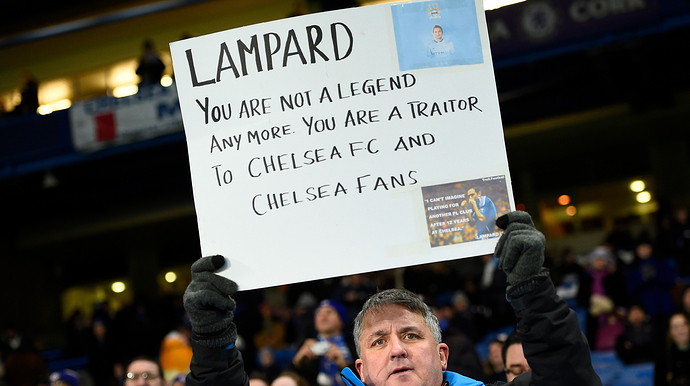 LAMPARD
YOU ARE NOT A LEGEND
ANY MORE. YOU ARE A TRAITOR
TO CHELSEA FC AND
CHELSEA FANS
"I CAN'T IMAGINE
PLAYING FOR
ANOTHER FL CLUB
AFTER 12 YEARS
AT CHELSEA."
LAMPARD